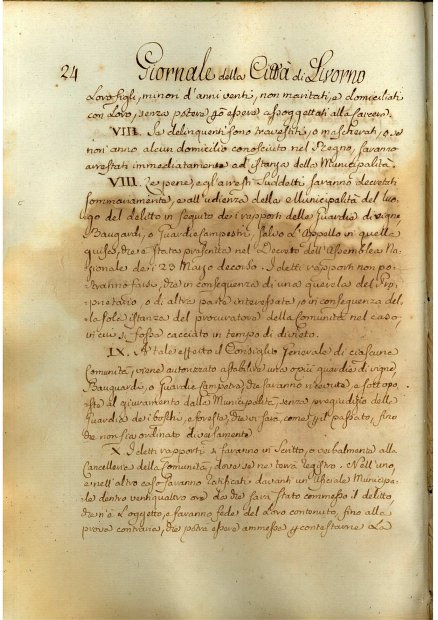 24 Giornale della Città di Livorno
Loro figli, minori d'anni venti, non maritati, e domiciliati
con Loro, senza potere pò essere assoggettati alla Carcere.
VIII. Se delinquenti sono travestiti, o mascherati, o se
non anno alcun domicilio conosciuto nel Regno, saranno
arrestati immediatamente ad istanza della Municipalità.
VIII. Le pene, e gli arresti suddetti saranno decretati
sommariamente, e all'udienza della Municipalità del luo-
go del delitto in seguito dei rapporti delle Guardie di vigne
Baugardi, o Guardie campestri, salvo l'Appello in quella
guisa, che è stata prescritta nel Decreto dell'Assemblea Na-
zionale dei 23 Marzo decorso. I detti rapporti non po-
tranno farsi, che in conseguenza di una querela del Pro-
prietario, o di altra parte interessata, o in conseguenza del-
la sola istanza del procuratore della Comunità nel caso,
in cui si fosse cacciato in tempo di divieto.
IX. A tale effetto il Consiglio Generale di ciascuna
Comunità, viene autorizzato a stabilire una o più guardie di vigne,
Bauguardi, o Guardie campestri, che saranno ricevute, e sottopo-
ste al giuramento dalla Municipalità, senza pregiudizio della
Guardia dei boschi, e foreste, che si farà, come pel passato, fino
che non sia ordinato diversamente.
X. I detti rapporti si faranno in Scritto, o verbalmente alla
Cancelleria della Comunità, dove se ne terrà registro. Nell'uno,
e nell'altro caso saranno ratificati davanti un Ufficiale Municipa-
le dentro ventiquattro ore da che sarà stato commesso il delitto,
che n'è l'oggetto, e faranno fede del Loro contenuto, fino alla
prova contraria, che potrà essere ammessa p contestarne la